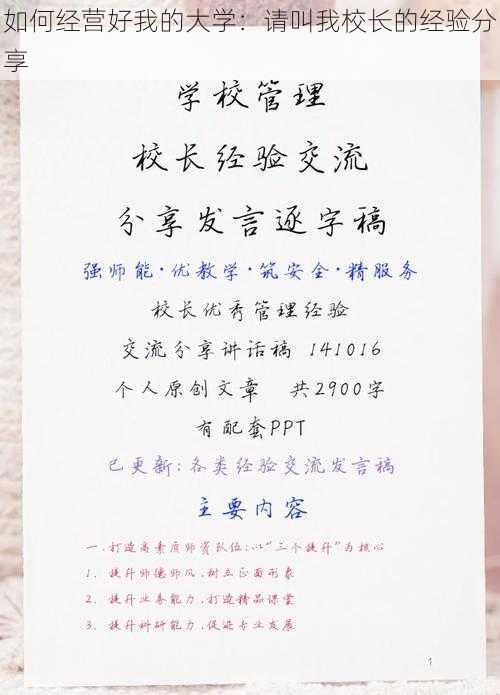 如何经营好我的大学：请叫我校长的经验分
享
学校管理
校长经验交流
分享发言逐字稿
强师能·优教学·筑安全·精服务
校长优秀管理经验
交流分享讲话稿 141016
个人原创文章 共2900字
有配套PPT
已更新:各类经验交流发言稿
主要内容
一.打造高素质师资队伍:以“三个提升”为核心
1. 提升师德师风,树立正面形象
2. 提升业务能力,打造精品课堂
3. 提升科研能力,促进专业发展
1